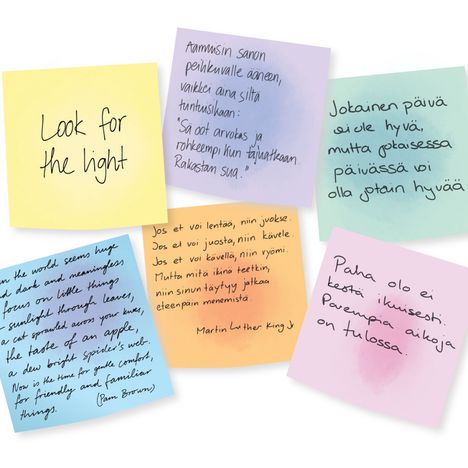 Look for
the light
Aamuisin sanon
peilikuvalle ääneen,
vaikkei aina siltä
tuntuisikaan:
"Sä oot arvokas ja
rohkeempi kun tajuatkaan.
Rakastan sua."
Jokainen päivä
ei ole hyvä,
mutta jokaisessa
päivässä voi
olla jotain hyvää
the world seems huge
dark and meaningless
focus on little things
sunlight through leaves,
a cat sprawled across your knees,
the taste of an apple,
a dew bright spider's web.
Now is the time for gentle comfort,
for friendly and familiar
things. (Pam Brown)
Jos et voi lentää, niin juokse.
Jos et voi juosta, niin kävele.
Jos et voi kävellä, niin ryömi.
Mutta mitä ikinä teetkin,
niin sinun täytyy jatkaa
eteenpäin menemistä.
Martin Luther King Jr
Paha olo ei
kestä ikuisesti.
Parempia aikoja
on tulossa.